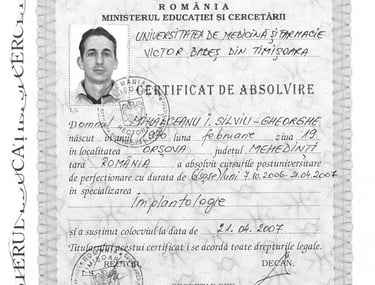 ROMÂNIA
MINISTERUL EDUCAȚIEI ȘI CERCETĂRII
UNIVERSITATEA DE MEDICINĂ ȘI FARMACIE
VICTOR BABEȘ DIN TIMIȘOARA
CERTIFICAT DE ABSOLVIRE
Domnul MIHALCEANU I. SILVIU-GHEORGHE
născut in anul 1970 luna februarie ziua 19
în localitatea ORȘOVA județul MEHEDINȚI
țara ROMÂNIA a absolvit cursurile postuniversitare
de perfecționare cu durata de 6(șase) luni 7.10.2006-21.04.2007
în specializarea
Implantologie
și a susținut colocviul la data de 21.04.2007
Titularului acestui certificat i se acordă toate drepturile legale.
RECTOR DECAN,
L.S.